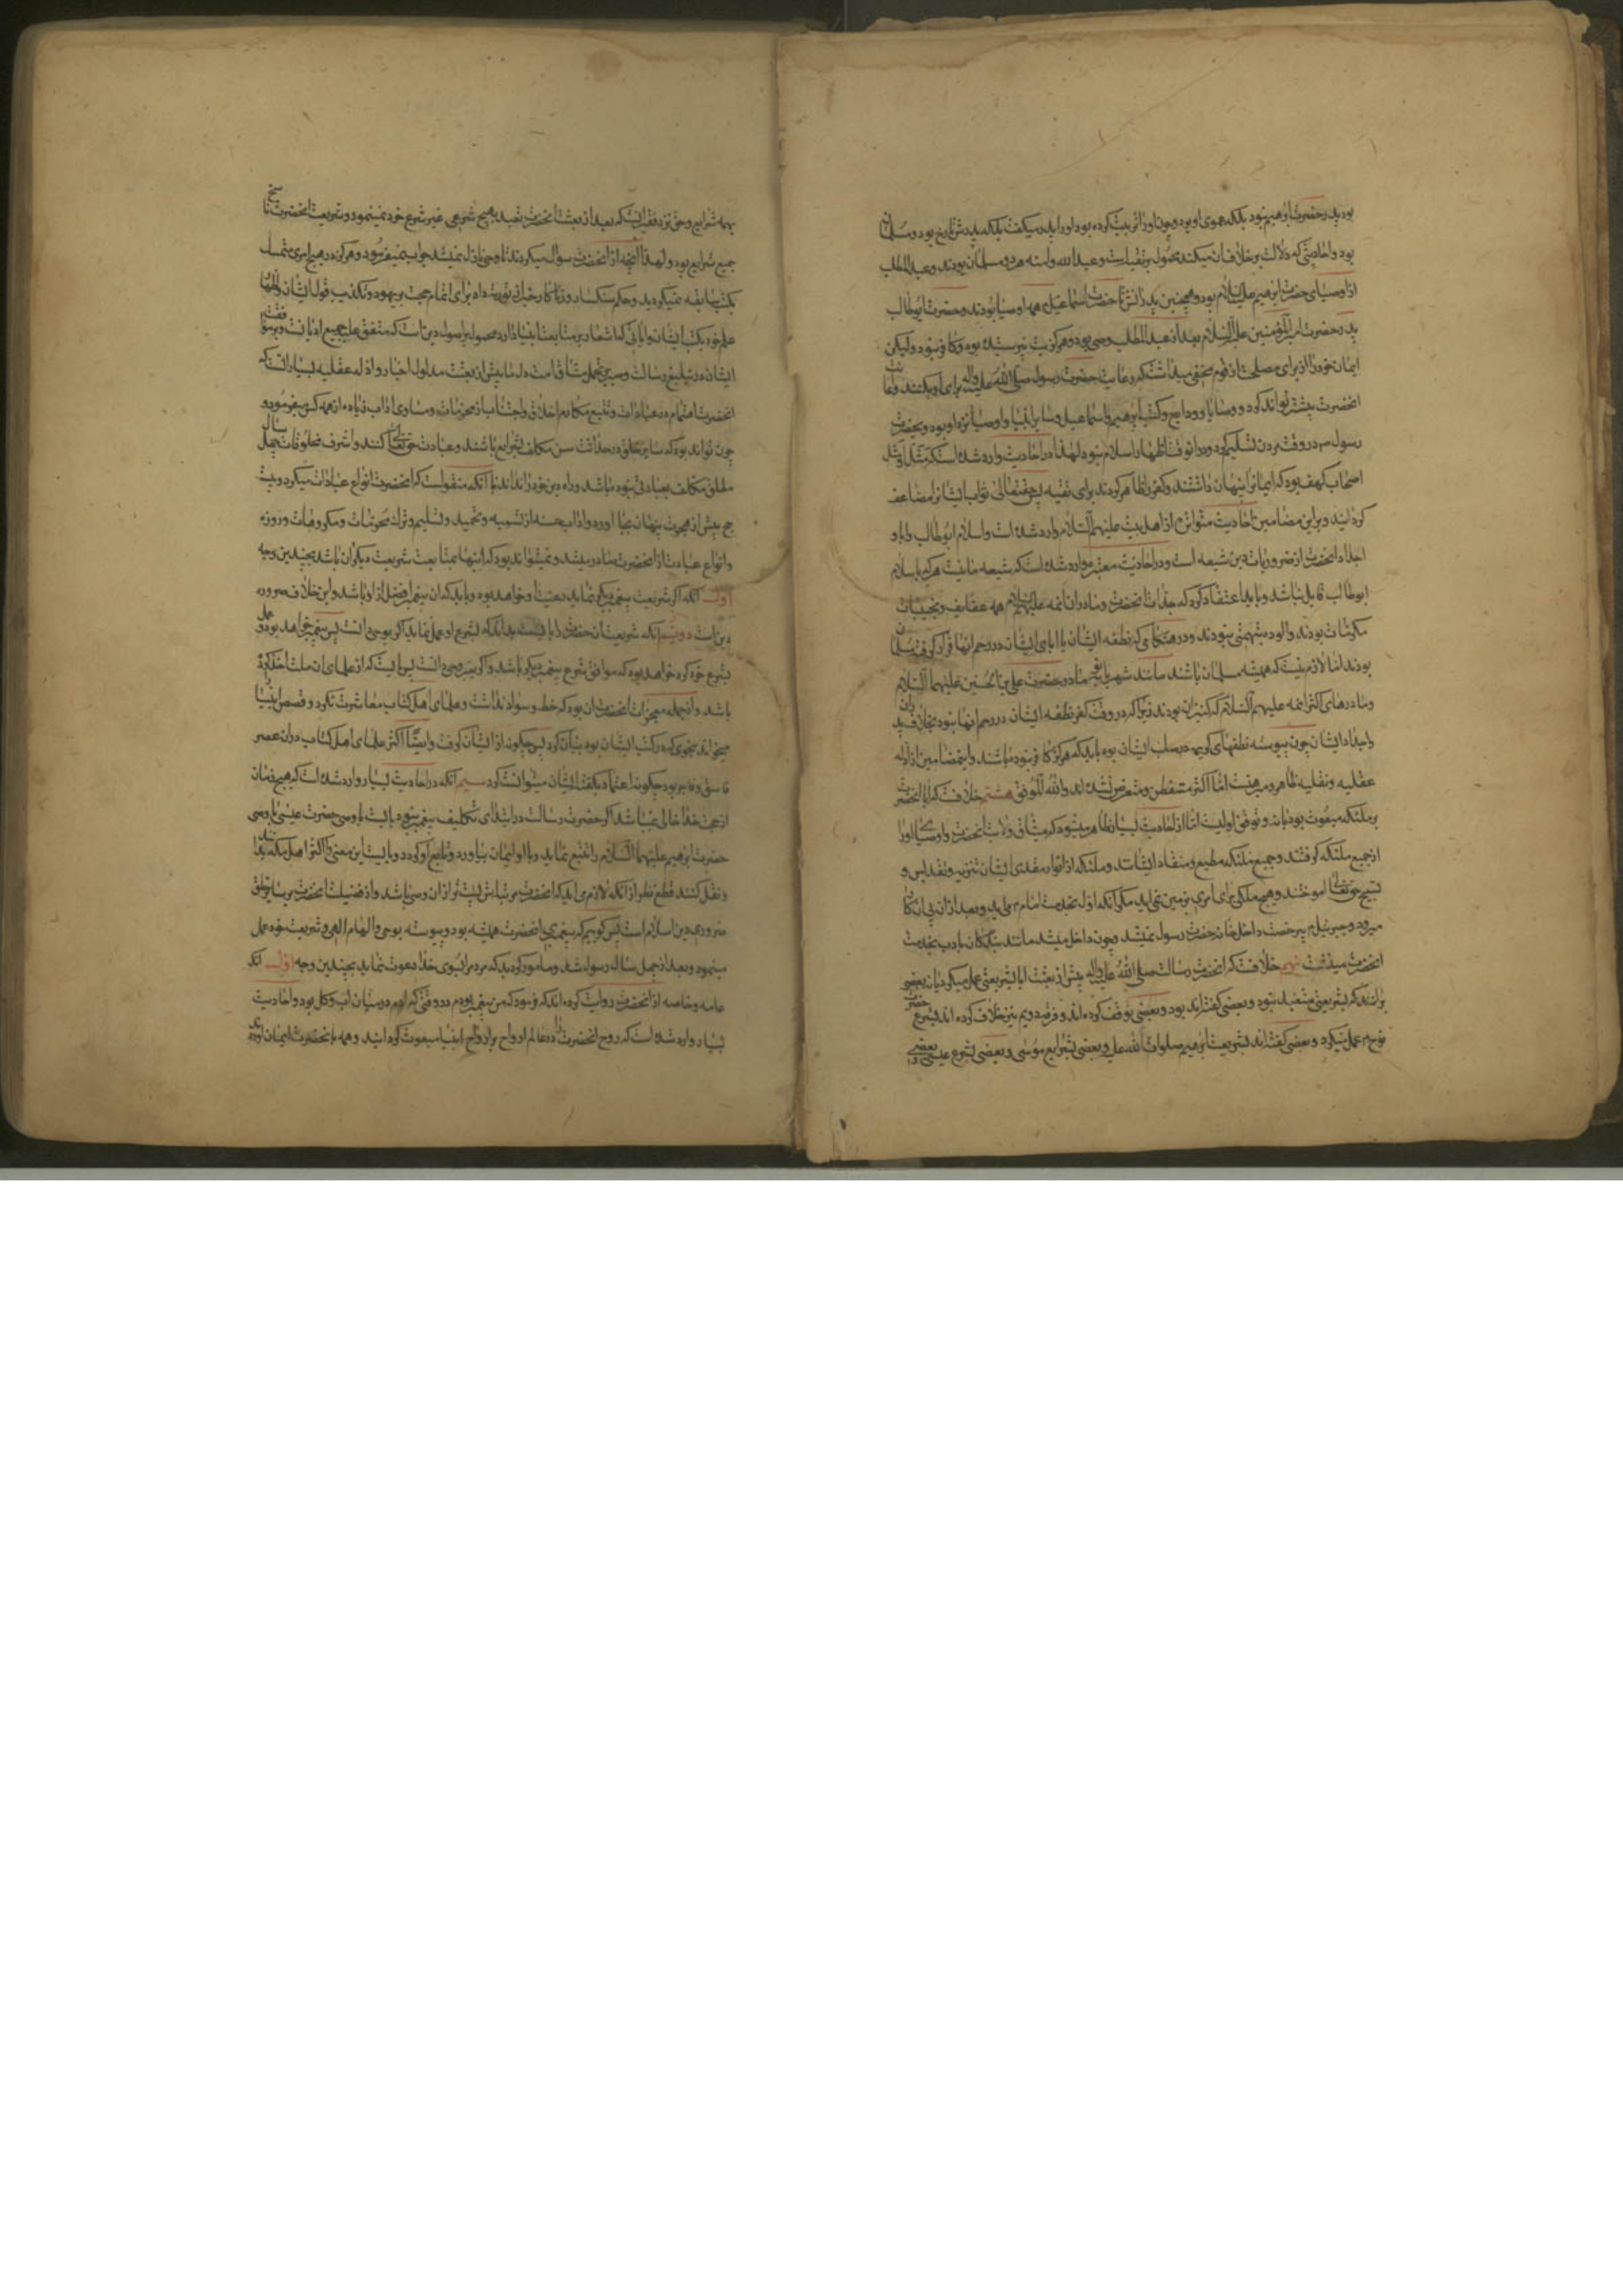 بود پدر حضرت ابرهیم نبود بلکه عموی او بود و چون او را تربیت کرده بود او را پدر میگفت بلکه پدرش تارخ بود و مسلمان
بود و احادیثی که دلالت بر خلاف آن میکند محمول بر تقیه است و عبد الله و آمنه هر دو مسلمان بودند و عبد المطلب
از اوصیای حضرت ابرهیم علیه السلام بود و همچنین پدرانش تا حضرت اسماعیل همه اوصیا بودند و حضرت ابوطالب
پدر حضرت امیر المؤمنین علیه السلام بعد از عبد المطلب وصی بود و هرگز بت نپرستیده بود و کافر نبود و لیکن
ایمان خود را از برای مصلحت از قوم مخفی میداشت که رعایت حضرت رسول صلی الله علیه واله برای او بکنند و حمایت
انحضرت بیشتر تواند کرد و وصایا و ودایع و کتب ابرهیم و اسماعیل و سایر انبیا و اوصیا نزد او بود و بحضرت
رسول ص در وقت مردن تسلیم کرد و در انوقت اظهار اسلام نمود لهذا در احادیث وارد شده است که مثل او مثل
اصحاب کهف بود که ایمانرا پنهان داشتند و کفر را ظاهر کردند برای تقیه پس حقتعالی ثواب ایشانرا مضاعف
گردانید و بر این مضامین احادیث متواتره از اهل بیت علیهم السلام وارد شده است و اسلام ابوطالب و ابا و
اجداد انحضرت از ضروریات دین شیعه است و در احادیث معتبره وارد شده است که شیعه ما نیست هرکه باسلام
ابوطالب قایل نباشد و باید اعتقاد کرد که جدات انحضرت و مادران ائمه علیهم السلام همه عفایف و نجیبات
مکرمات بودند و الوده بتهمتی نبودند و در هنگامی که نطفه ایشان با ابای ایشان در رحم انها قرار گرفت مسلمان
بودند اما لازم نیست که همیشه مسلمان باشند مانند شهربانو مادر حضرت علی بن الحسین علیهما السلام
و مادرهای اکثر ائمه علیهم السلام که کنیزان بودند زیرا که در وقت کفر نطفه ایشان در رحم انها نبود بخلاف پدران
و اجداد ایشان چون پیوسته نطفهای کریمه در صلب ایشان بوده باید که هرگز کافر نبوده باشند و این مضامین از ادله
عقلیه و نقلیه ظاهر و مبرهنست اما اکثر متفطن و متعرض نشده اند و الله الموفق هشتم خلافست که ایا انحضرت
بر ملئکه مبعوث بود یا نه و توقف اولیست اما از احادیث بسیار ظاهر میشود که میثاق ولایت انحضرت و اوصیای او را
از جمیع ملئکه گرفتند و جمیع ملئکه مطیع و منقاد ایشانند و ملئکه از انوار مقدس ایشان تنزیه و تقدیس و
تسبیح حقتعالی اموختند و هیچ ملکی برای امری بزمین نمی اید مگر انکه اول بخدمت امام می اید و بعد از ان پی ان کار
میرود و جبرئیل بی رخصت داخل خانه حضرت رسول نمیشد و چون داخل میشد مانند بندگان با ادب بخدمت
انحضرت مینشست نهم خلافست که انحضرت رسالت صلی الله علیه واله پیش از بعثت ایا بشریعتی عمل میکرد یا نه بعضی
برانند که بشریعتی متعبد نبود و بعضی گفته اند بود و بعضی توقف کرده اند و فرقه دویم نیز خلاف کرده اند بشرع حضرت
نوح م عمل میکرد و بعضی گفته اند بشریعت ابرهیم صلوات الله علیه و بعضی بشرایع موسی و بعضی بشرع عیسی و بعضی
بهمه شرایع و حق نزد فقیر انست که بعد از بعثت انحضرت متعبد بهیچ شرعی غیر شرع خود نمینمود و شریعت انحضرت ناسخ
جمیع شرایع بود و لهذا انچه از انحضرت سوال میکردند تا وحی نازل نمیشد جواب نمیفرمود و هرگز در هیچ امری متمسک
بکتب سابقه نمیگردید و حکم سنگسار و زناکار را خبر از توریت داد برای اتمام حجت بر یهود و تکذیب قول ایشان و اظهار
علم خود بکتب ایشان و ایاتی که اشعار بر متابعت انبیا دارد محمول بر اصول دین است که متفق علیه جمیع ادیانست و بر موافقت
ایشان در تبلیغ رسالت و صبر بر تحمل مشاق امت و اما پیش از بعثت مدلول اخبار و ادله عقلیه بسیار انست که
انحضرت اهتمام در عبادات و تتبع مکارم اخلاق و اجتناب از محرمات و مساوی اداب زیاده از همه کس میفرمود و
چون تواند بود که سایر خلق در حداثت سن مکلف بشرایع باشند و عبادت حقتعالی کنند و اشرف مخلوقات چهل سال
مطلق مکلف بعبادتی نبوده باشد و راه دین خود را نداند با انکه منقولست که انحضرت انواع عبادات میکرد و بیست
حج پیش از هجرت پنهان بجا اورد و اداب حسنه از تسمیه و تحمید و تسلیم و ترک محرمات و مکروهات و روزه
و انواع عبادت از انحضرت صادر میشد و نمیتواند بود که اینها بمتابعت شریعت دیگران باشد بچندین وجه
اول انکه اگر شریعت پیغمبر دیگر نماید رعیت او خواهد بود و باید که ان پیغمبر افضل از او باشد و این خلاف ضروره
دین است دویم انکه شریعت ان حضرت را بایست بداند که بشرع او عمل نماید اگر بوحی دانست پس پیغمبر خواهد بود و عمل
بشرع خود کرده خواهد بود که موافق شرع پیغمبر دیگر باشد و اگر بغیر وحی دانست پس بایست که از علمای ان ملت اخذ کرده
باشد و از جمله معجزات انحضرت ان بود که خط و سواد نداشت و علمای اهل کتاب معاشرت نکرد و قصص انبیا را
میخواند بنحوی که در کتب ایشان بود بیان کرد پس چگونه از ایشان گرفت و ایضا اکثر علمای اهل کتاب در ان عصر
فاسق و فاجر بودند چگونه اعتماد بگفته ایشان میتوانست کرد سیم انکه در احادیث بسیار وارد شده است که هیچ زمان
از حجت خدا خالی نمیباشد اگر حضرت رسالت در ابتدای تکلیف پیغمبر نبود بایست با وصی حضرت عیسی یا وصی
حضرت ابرهیم علیهما السلام را تتبع نماید و با او ایمان بیاورد و تابع او گردد و بایست این معنی را اکثر اهل مکه بدانند
و نقل کنند قطع نظر از انکه لازم می اید که انحضرت مرتبه اش پست تر از ان وصی باشد و افضلیت انحضرت بر سایر خلق
ضروری دین اسلام است پس گوییم که پیغمبری انحضرت همیشه بود و پیوسته بوحی و الهام الهی و شریعت خود عمل
مینمود و بعد از چهل سال رسول شد و مامور گردید که مردم را بسوی خدا دعوت نماید بچندین وجه اول انکه
عامه و خاصه از انحضرت روایت کرده اند که فرمود که من پیغمبر بودم در وقتی که ادم در میان اب و گل بود و احادیث
بسیار وارد شده است که روح انحضرت را در عالم ارواح بر ارواح انبیا مبعوث گردانید و همه بانحضرت ایمان اوردند